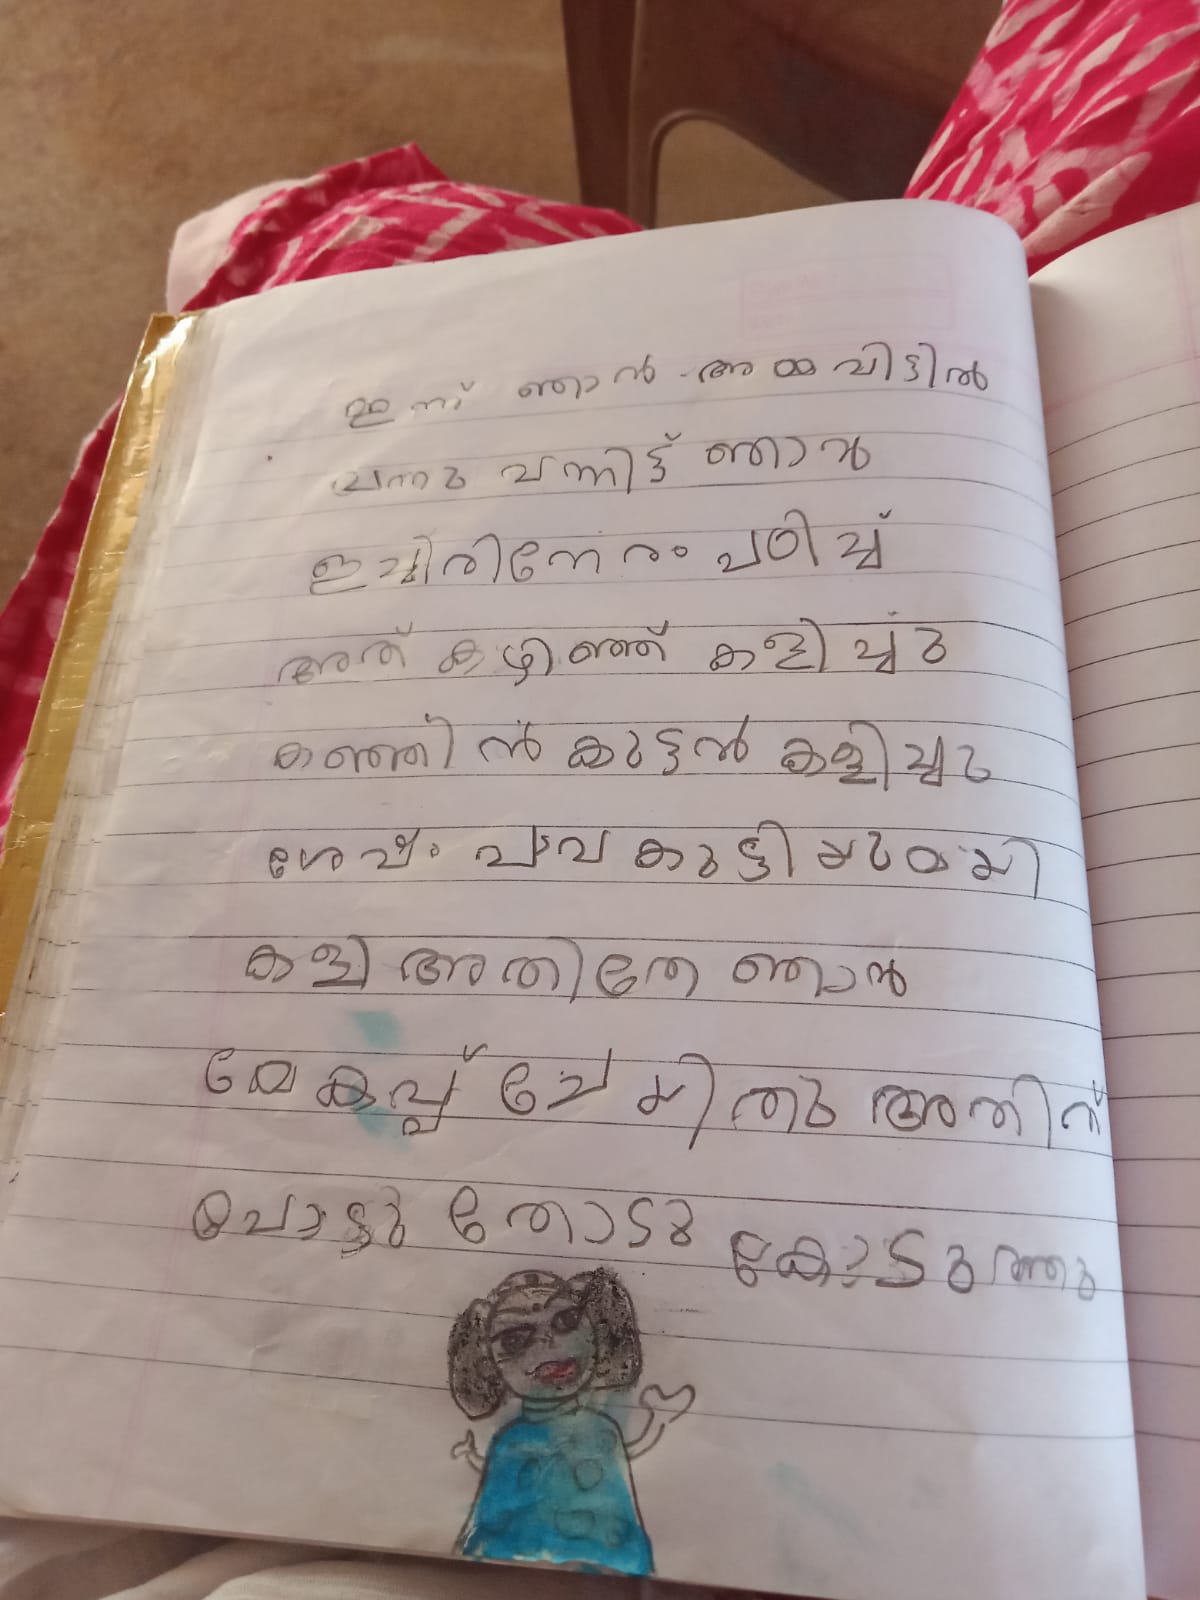 ഇന്ന് ഞാൻ അമ്മവിട്ടിൽ
വന്നു വന്നിട്ട് ഞാൻ
ഇച്ചിരിനേരം പഠിച്ച്
അത് കഴിഞ്ഞ് കളിച്ചു
കഞ്ഞിൻ കുട്ടൻ കളിച്ചു
ശേഷം പാവ കുട്ടിയുമയി
കളി അതിതേ ഞാൻ
മേകപ്പ് ചേയിതു അതിന്
പൊട്ടു തോടു കോടുത്തു